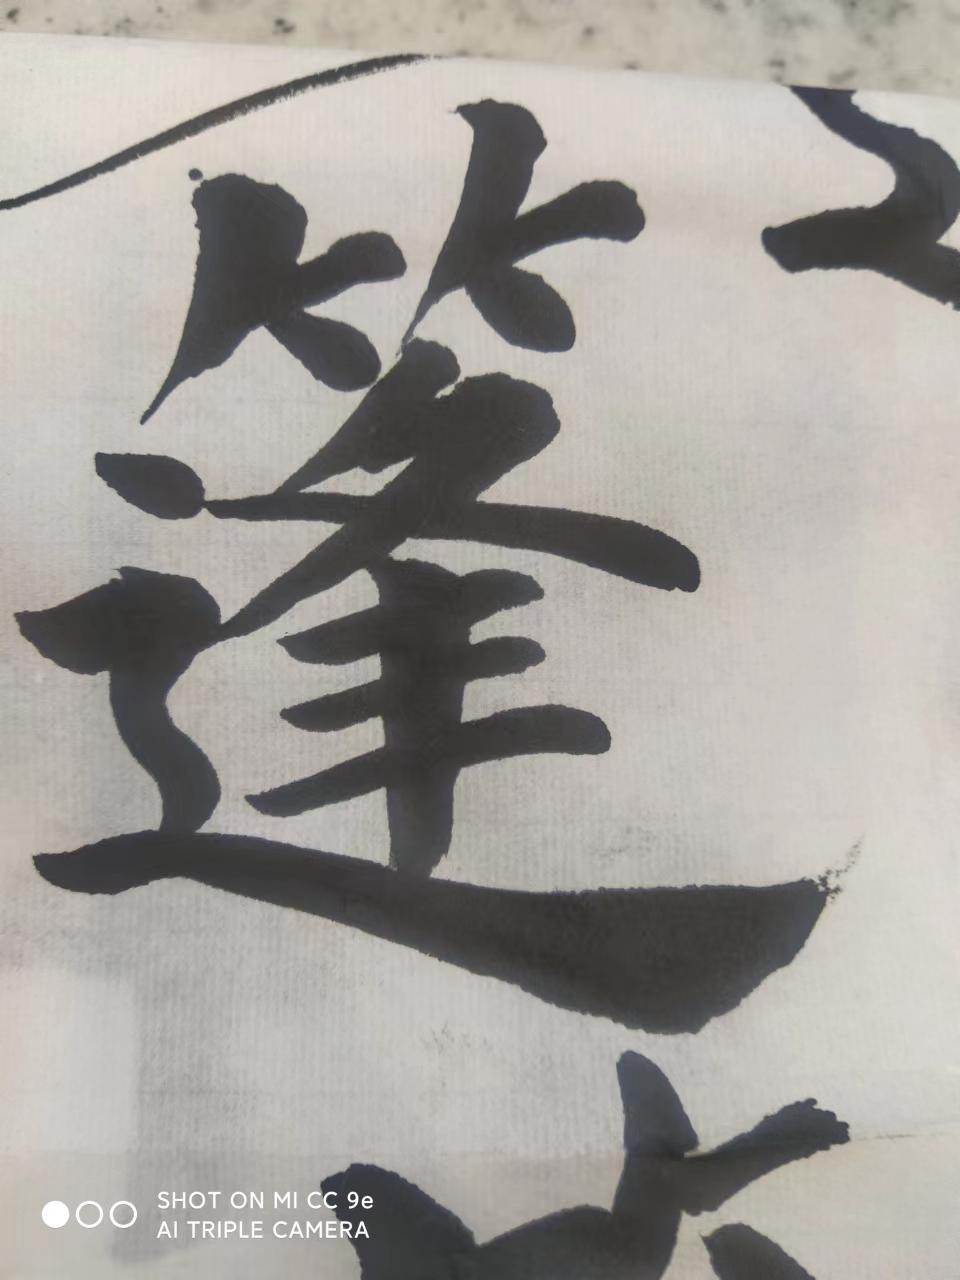 篷
SHOT ON MI CC 9e
AI TRIPLE CAMERA